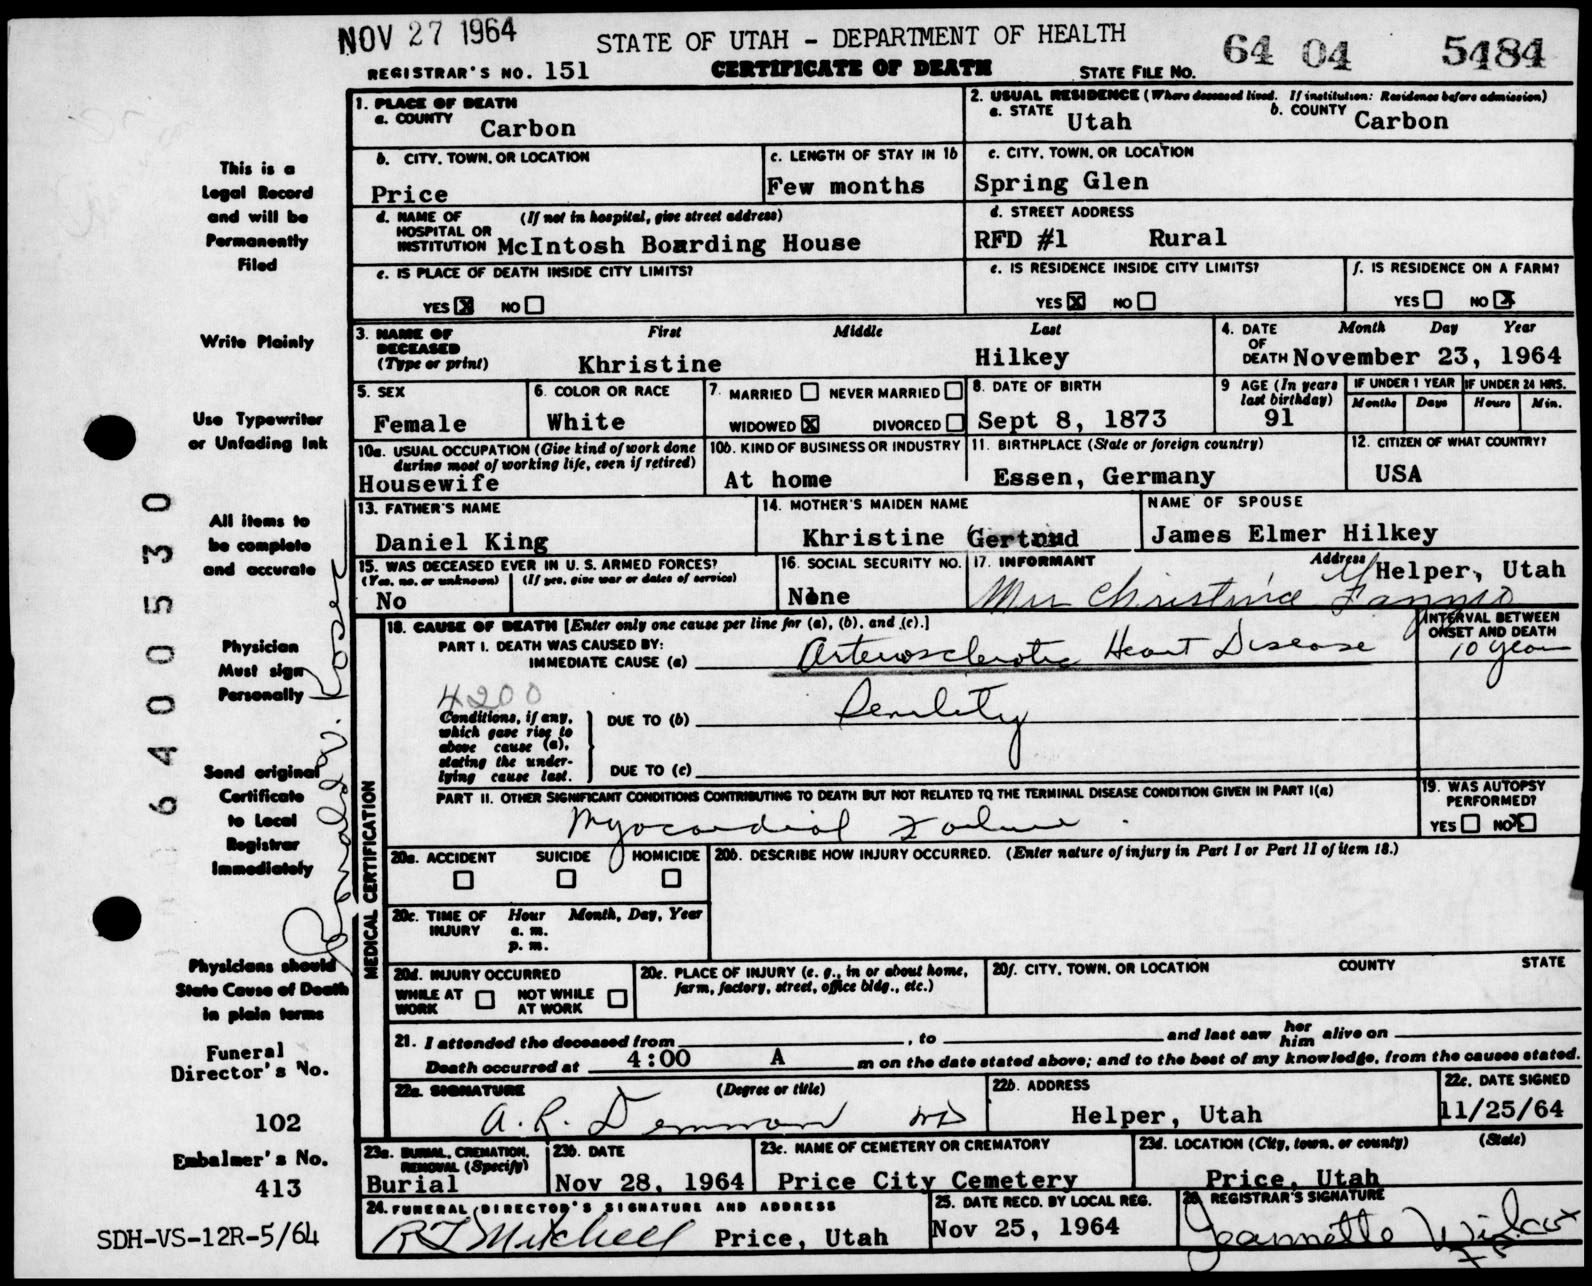 NOV 27 1964
STATE OF UTAH - DEPARTMENT OF HEALTH
64 04 5484
REGISTRAR'S NO. 151
CERTIFICATE OF DEATH
STATE FILE NO.
1. PLACE OF DEATH
a. COUNTY Carbon
2. USUAL RESIDENCE (Where deceased lived. If institution: Residence before admission)
a. STATE Utah
b. COUNTY Carbon
b. CITY, TOWN, OR LOCATION
Price
c. LENGTH OF STAY IN 1b
Few months
c. CITY, TOWN, OR LOCATION
Spring Glen
d. NAME OF HOSPITAL OR INSTITUTION (If not in hospital, give street address)
McIntosh Boarding House
d. STREET ADDRESS
RFD #1 Rural
e. IS PLACE OF DEATH INSIDE CITY LIMITS?
YES X NO
e. IS RESIDENCE INSIDE CITY LIMITS?
YES X NO
f. IS RESIDENCE ON A FARM?
YES NO X
3. NAME OF DECEASED (Type or print)
First Middle Last
Khristine Hilkey
4. DATE OF DEATH
Month Day Year
November 23, 1964
5. SEX
Female
6. COLOR OR RACE
White
7. MARRIED NEVER MARRIED
WIDOWED X DIVORCED
8. DATE OF BIRTH
Sept 8, 1873
9 AGE (In years last birthday)
91
IF UNDER 1 YEAR
Months Days
IF UNDER 24 HRS.
Hours Min.
10a. USUAL OCCUPATION (Give kind of work done during most of working life, even if retired)
Housewife
10b. KIND OF BUSINESS OR INDUSTRY
At home
11. BIRTHPLACE (State or foreign country)
Essen, Germany
12. CITIZEN OF WHAT COUNTRY?
USA
13. FATHER'S NAME
Daniel King
14. MOTHER'S MAIDEN NAME
Khristine Gertrud
NAME OF SPOUSE
James Elmer Hilkey
15. WAS DECEASED EVER IN U. S. ARMED FORCES?
(Yes, no, or unknown) (If yes, give war or dates of service)
No
16. SOCIAL SECURITY NO.
None
17. INFORMANT
Address
Helper, Utah
Mrs Christina
18. CAUSE OF DEATH [Enter only one cause per line for (a), (b), and (c).]
PART I. DEATH WAS CAUSED BY:
IMMEDIATE CAUSE (a) Arteriosclerotic Heart Disease
INTERVAL BETWEEN ONSET AND DEATH
10 years
4200
Conditions, if any, which gave rise to above cause (a), stating the underlying cause last.
DUE TO (b) Senility
DUE TO (c)
PART II. OTHER SIGNIFICANT CONDITIONS CONTRIBUTING TO DEATH BUT NOT RELATED TO THE TERMINAL DISEASE CONDITION GIVEN IN PART I(a)
Myocardial Failure
19. WAS AUTOPSY PERFORMED?
YES NO X
MEDICAL CERTIFICATION
20a. ACCIDENT SUICIDE HOMICIDE
20b. DESCRIBE HOW INJURY OCCURRED. (Enter nature of injury in Part I or Part II of item 18.)
20c. TIME OF INJURY
Hour Month, Day, Year
a. m.
p. m.
20d. INJURY OCCURRED
WHILE AT WORK NOT WHILE AT WORK
20e. PLACE OF INJURY (e. g., in or about home, farm, factory, street, office bldg., etc.)
20f. CITY, TOWN, OR LOCATION COUNTY STATE
21. I attended the deceased from , to and last saw her him alive on
Death occurred at 4:00 A m on the date stated above; and to the best of my knowledge, from the causes stated.
22a. SIGNATURE (Degree or title)
A. R. Demman MD
22b. ADDRESS
Helper, Utah
22c. DATE SIGNED
11/25/64
23a. BURIAL, CREMATION, REMOVAL (Specify)
Burial
23b. DATE
Nov 28, 1964
23c. NAME OF CEMETERY OR CREMATORY
Price City Cemetery
23d. LOCATION (City, town, or county) (State)
Price, Utah
24. FUNERAL DIRECTOR'S SIGNATURE AND ADDRESS
R L Mitchell Price, Utah
25. DATE RECD. BY LOCAL REG.
Nov 25, 1964
26. REGISTRAR'S SIGNATURE
Jeannette Wilcox
This is a
Legal Record
and will be
Permanently
Filed
Write Plainly
Use Typewriter
or Unfading Ink
All items to
be complete
and accurate
Physician
Must sign
Personally
Send original
Certificate
to Local
Registrar
Immediately
Physicians should
State Cause of Death
in plain terms
Funeral
Director's No.
102
Embalmer's No.
413
SDH-VS-12R-5/64
640 0530
Ronald V.